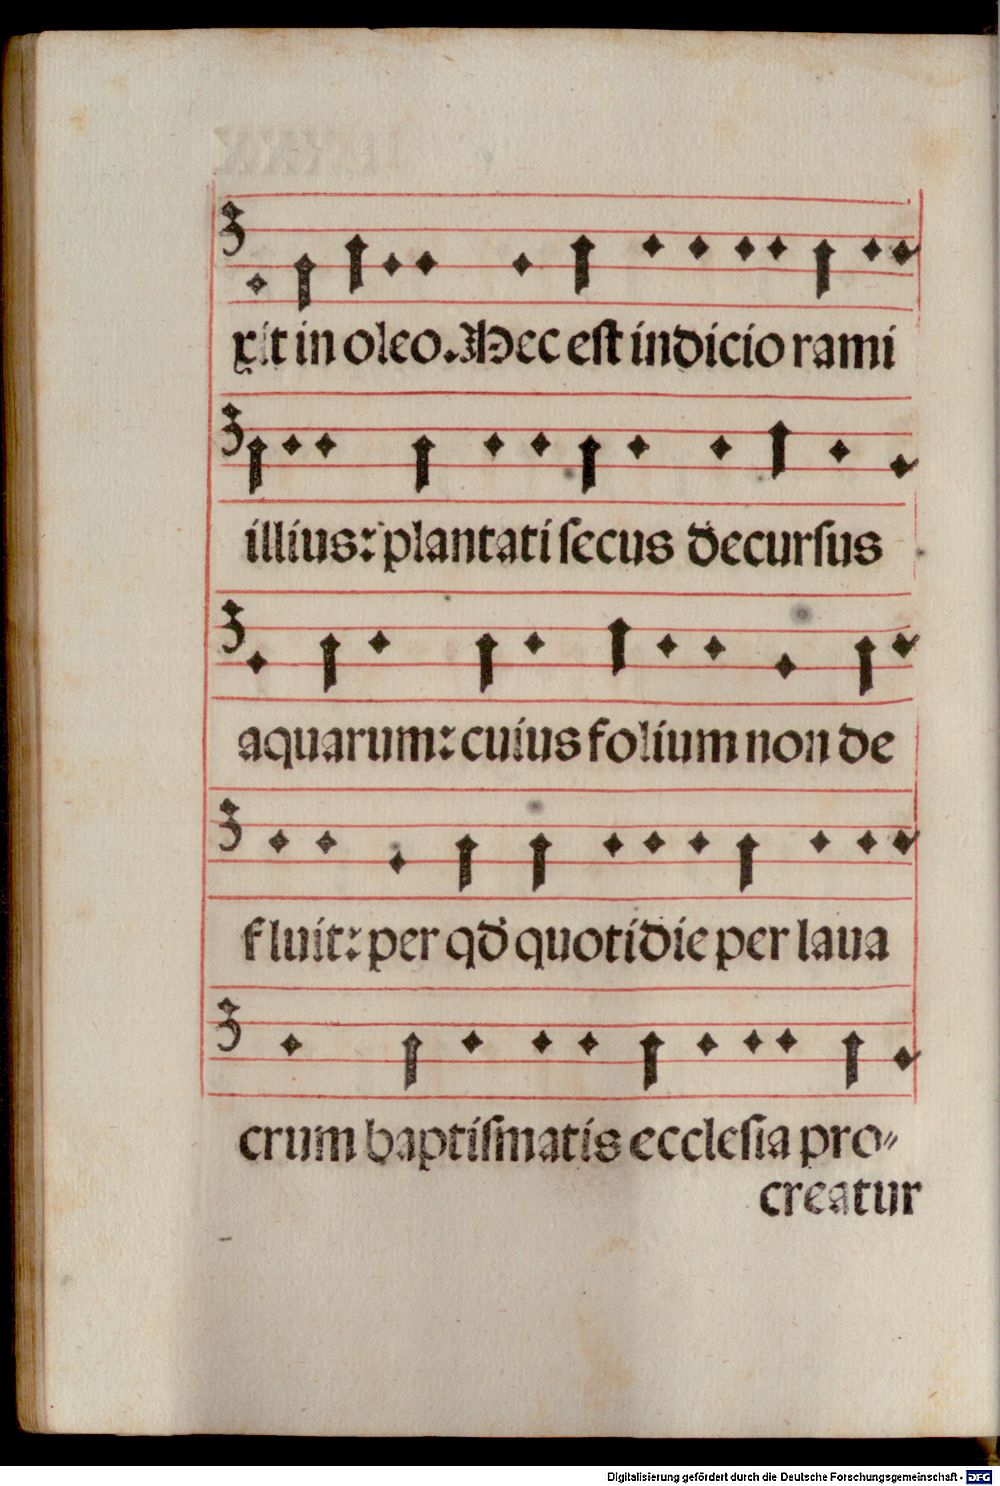 xit in oleo. Hec est in dicio rami
illius: plantati ſecus decurſus
aquarum: cuius folium non de
fluit: per qđ quotidie per laua
crum baptiſmatis eccleſia pro⸗
creatur
Digitalisierung gefördert durch die Deutsche Forschungsgemeinschaft - DFG